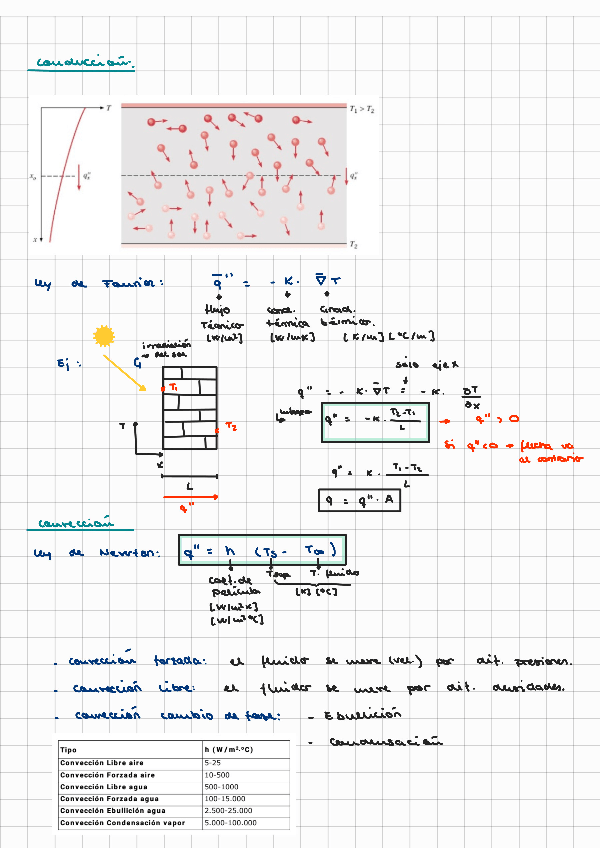 Conducción.
T
T₁ > T₂
xₒ
q''ₓ
q''ₓ
x
T₂
Ley de Fourier: q̄'' = - K · ∇̄T
flujo cond. Grad.
térmico térmica térmico.
[W/m²] [W/mK] [K/m] [°C/m]
irradiación
del sol
Ej: G
T₁
T₂
T
x
L
q''
solo eje x
q'' = - K · ∇̄T = - K · ∂T/∂x
q'' = - K · T₂-T₁/L → q'' > 0
Si q''<0 → flecha va
al contrario
q'' = K · T₁-T₂/L
q = q'' · A
Convección
Ley de Newton: q'' = h (Ts - T∞)
coef. de Tsup T. fluido
película [K] [°C]
[W/m²K]
[W/m²°C]
- convección forzada: el fluido se mueve (vel.) por dif. presiones.
- convección libre: el fluido se mueve por dif. densidades.
- convección cambio de fase: - Ebullición
- Condensación
Tipo h (W/m².ºC)
Convección Libre aire 5-25
Convección Forzada aire 10-500
Convección Libre agua 500-1000
Convección Forzada agua 100-15.000
Convección Ebullición agua 2.500-25.000
Convección Condensación vapor 5.000-100.000